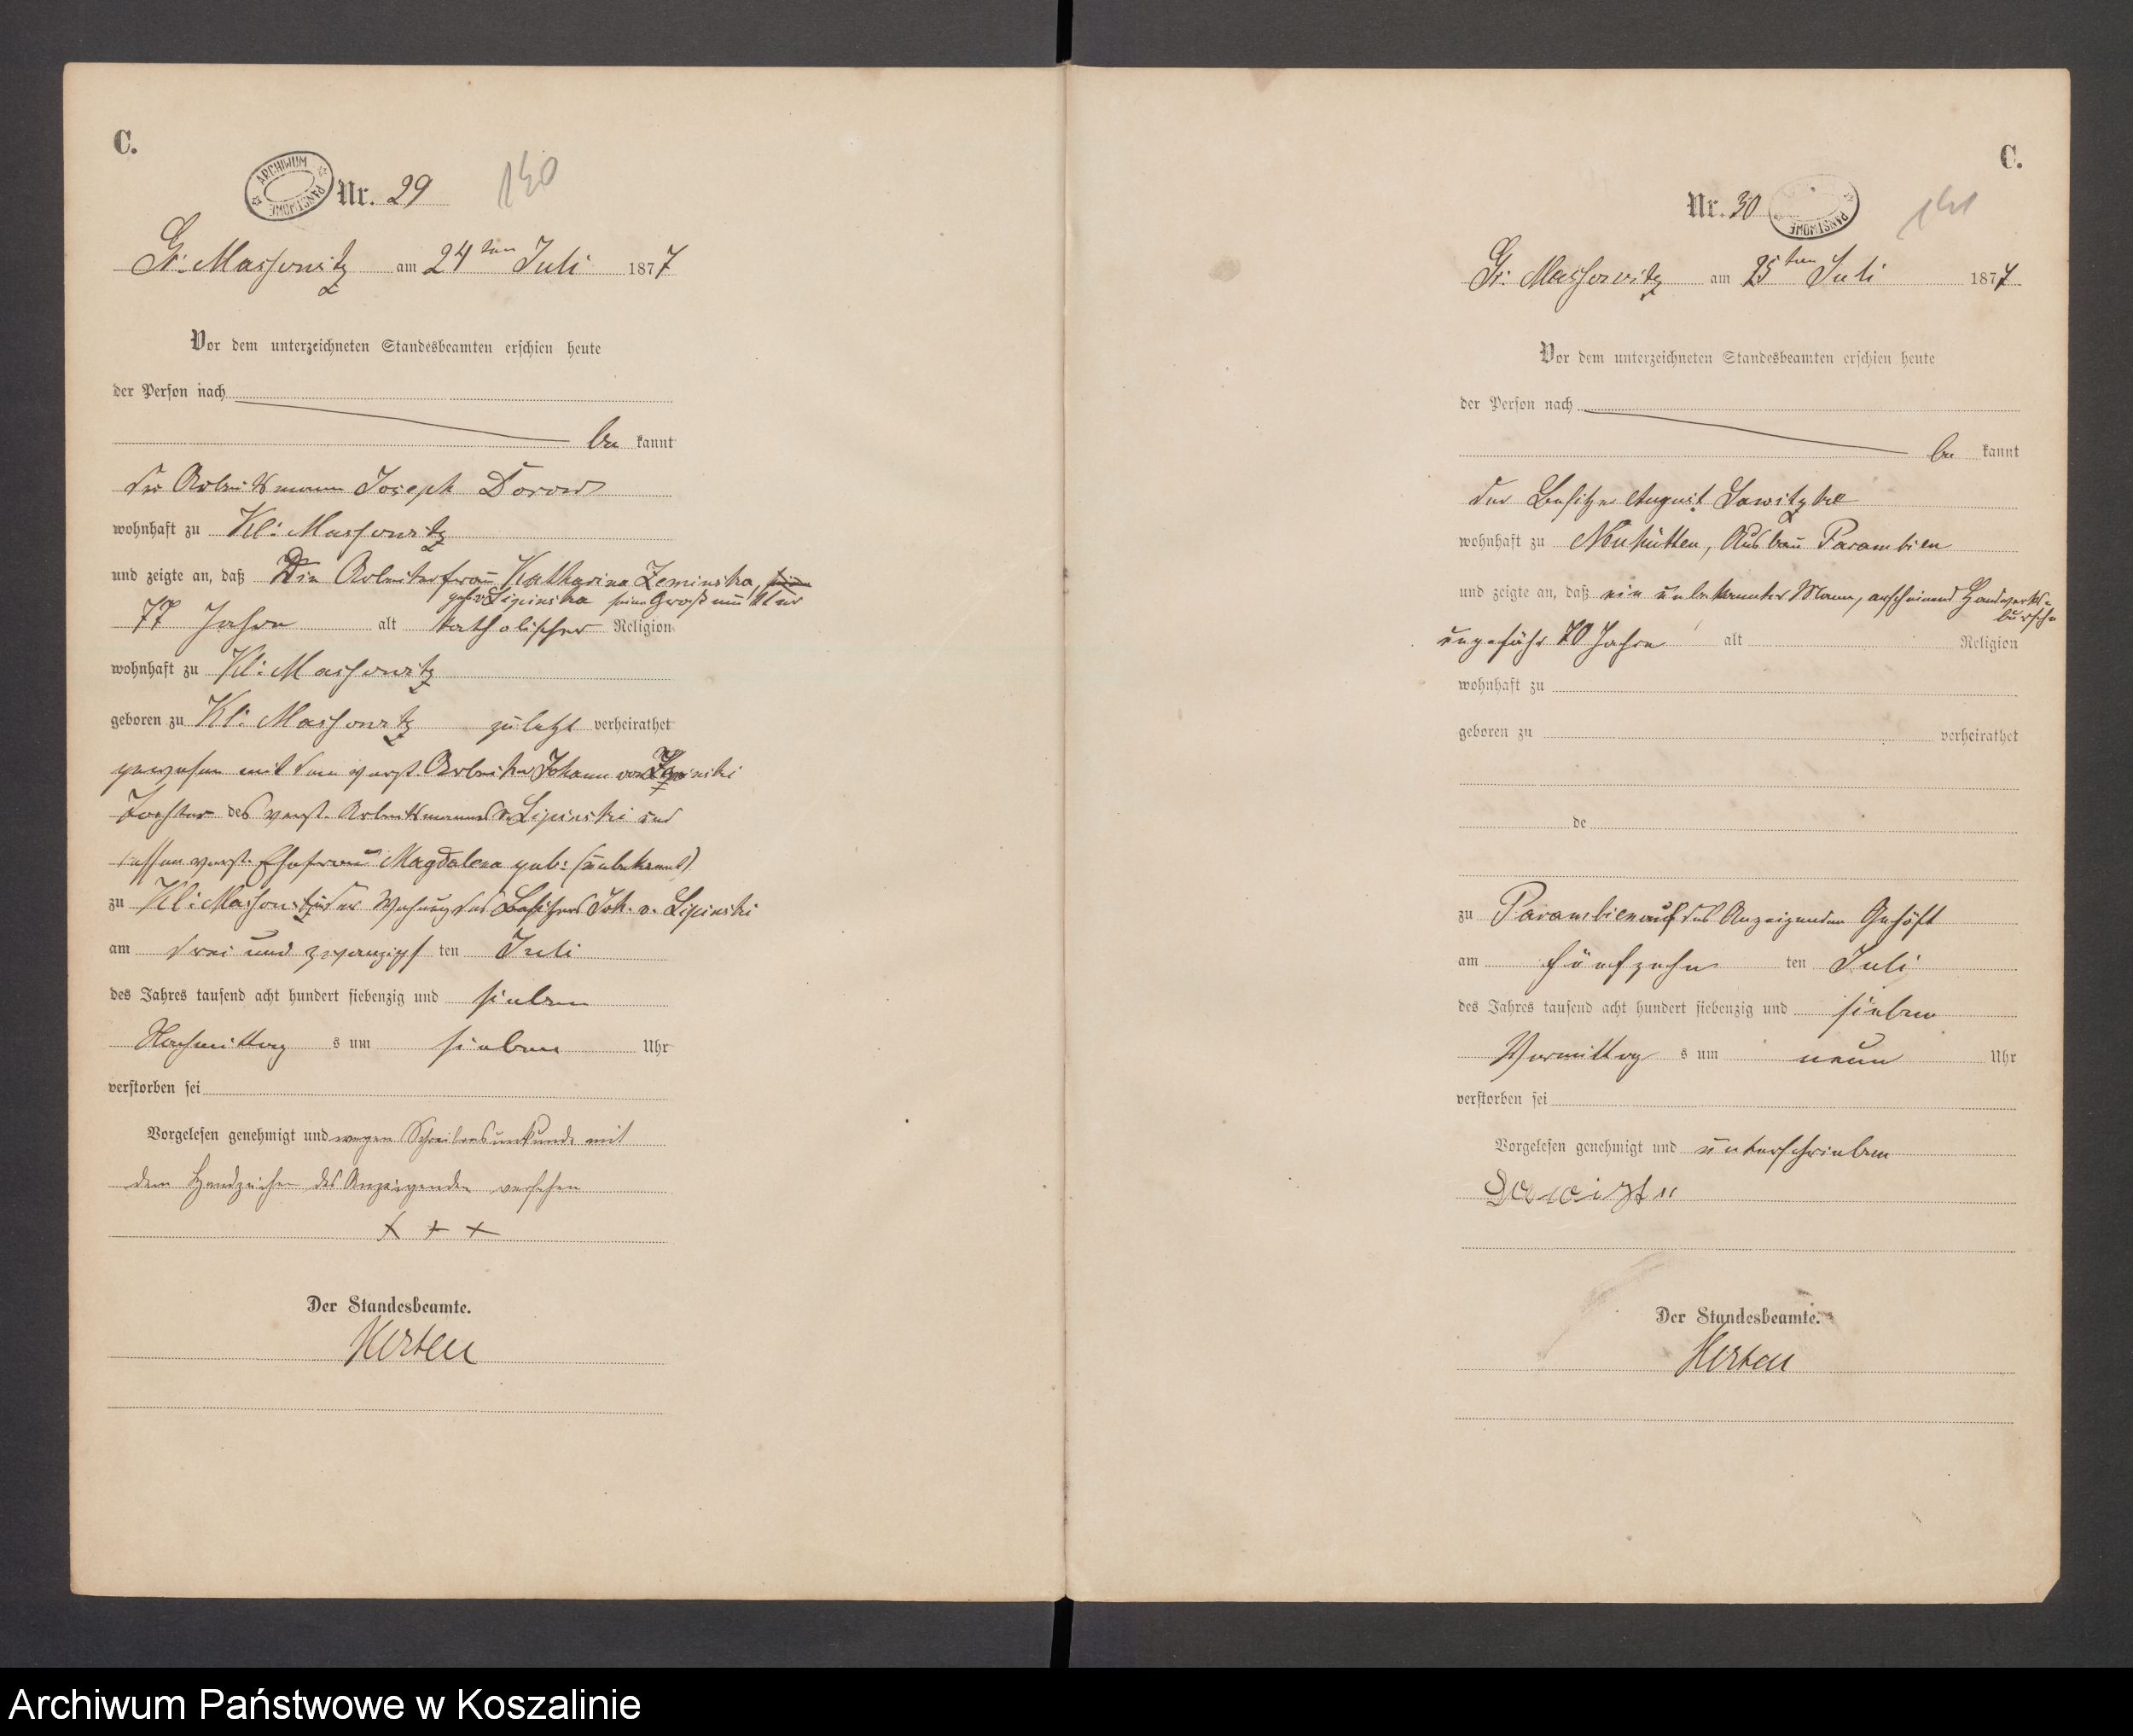 C.
ARCHIWUM PAŃSTWOWE
Nr. 29
140
Gr: Massowitz am 24ten Juli 1877
Vor dem unterzeichneten Standesbeamten erschien heute
der Person nach
be kannt
der Arbeitsmann Joseph Dorow
wohnhaft zu Kl: Massowitz
und zeigte an, daß Die Arbeiterfrau Katharina Zeminska,
geb. v Lipinska seine Großmutter
77 Jahre alt katholischer Religion
wohnhaft zu Kl: Massowitz
geboren zu Kl: Massowitz zuletzt verheirathet
gewesen mit dem verst. Arbeiter Johann von
Tochter des verst. Arbeitsmannes v. Lipinski und
dessen verst. Ehefrau Magdalena geb: (unbekannt)
zu Kl: Massowitz in der Wohnung des Besitzers Joh. v. Lipinski
am drei und zwanzigsten Juli
des Jahres tausend acht hundert siebenzig und sieben
Nachmittags um sieben Uhr
verstorben sei
Vorgelesen genehmigt und wegen Schreibensunkunde mit
dem Handzeichen des Anzeigenden versehen
+ + +
Der Standesbeamte.
Kersten
C.
Nr. 30
PAŃSTWOWE
141
Gr: Massowitz am 25ten Juli 1877
Vor dem unterzeichneten Standesbeamten erschien heute
der Person nach
be kannt
der Besitzer August Sawitzke
wohnhaft zu Neuhütten, Ausbau Parambien
und zeigte an, daß ein unbekannter Mann, anscheinend Handwerks-
bursche
ungefähr 70 Jahre alt Religion
wohnhaft zu
geboren zu verheirathet
de
zu Parambien auf des Anzeigenden Gehöft
am fünfzehn ten Juli
des Jahres tausend acht hundert siebenzig und sieben
Vormittags um neun Uhr
verstorben sei
Vorgelesen genehmigt und unterschrieben
Der Standesbeamte.
Kersten
Archiwum Państwowe w Koszalinie